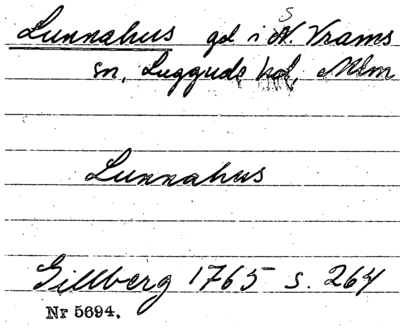 Lunnahus gd i N. Vrams
S
sn, Luggude hd, Mlm
Lunnahus
Gillberg 1765 s. 264
Nr 5694.